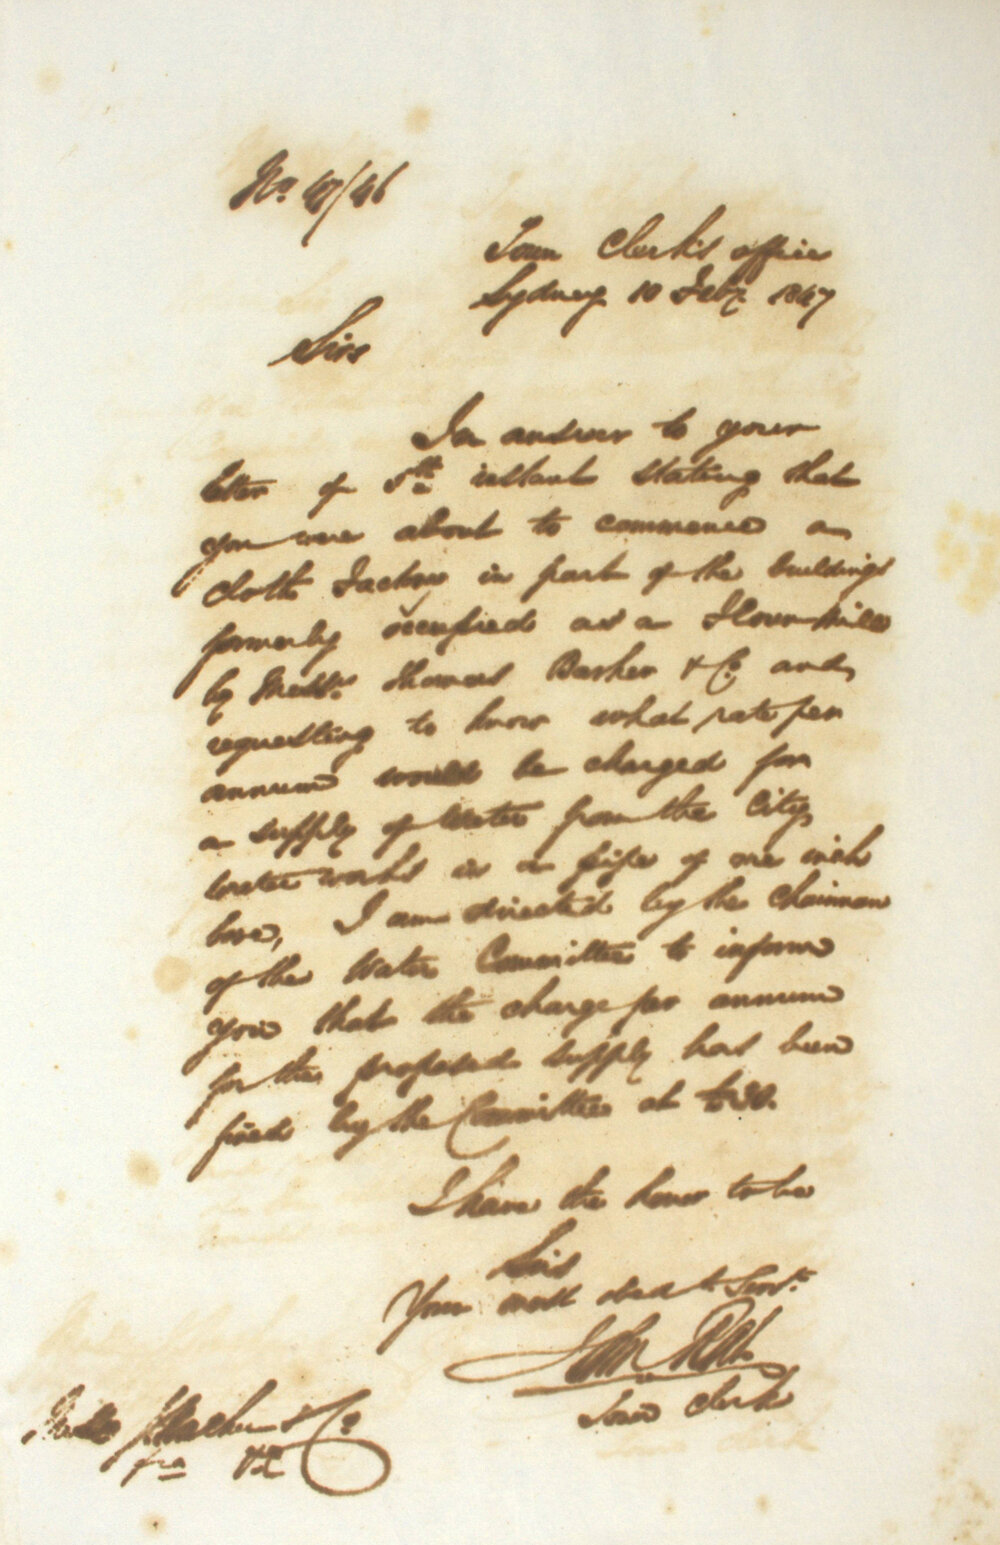 No. 47/46
Town Clerk's office
Sydney 10 Feby. 1847
Sirs
In answer to your
letter of 5th instant stating that
you were about to commence a
Cloth Factory in part of the buildings
formerly occupied as a Flour Mill
by Messrs. Thomas Barker & Co. and
requesting to know what rate per
annum would be charged for
a supply of Water from the City
Water works in a pipe of one inch
bore, I am directed by the Chairman
of the Water Committee to inform
you that the charge per annum
for the proposed supply has been
fixed by the Committee at
I have the honor to be
Sirs
Your most obedt. Servt.
John Rae
Town Clerk
Messrs Barker & Co